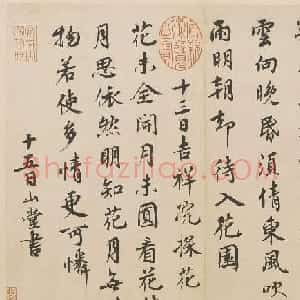 雲向晚昏須倩東風吹
雨明朝却待入花園
十三日吉祥院探花
花未全開月未圓看花
月思依然明知花月無
物若使多情更可憐
十五日山堂書
Shufaziliao.com